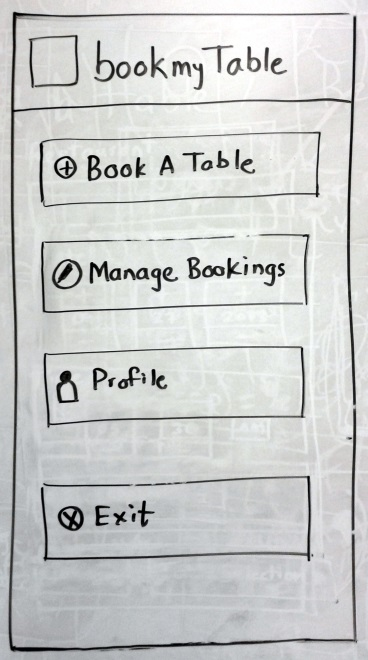 bookmyTable
Book A Table
Manage Bookings
Profile
Exit